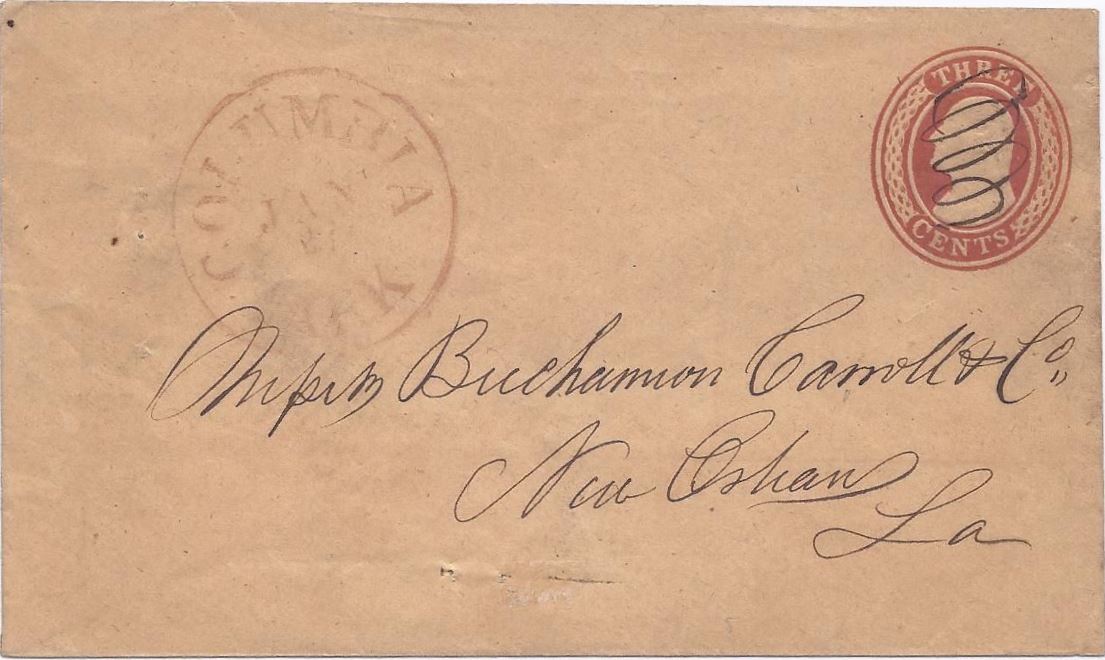 COLUMBIA
JAN
ARK
THREE
CENTS
Messrs Buchannon Carroll & Co,,
New Orleans
La